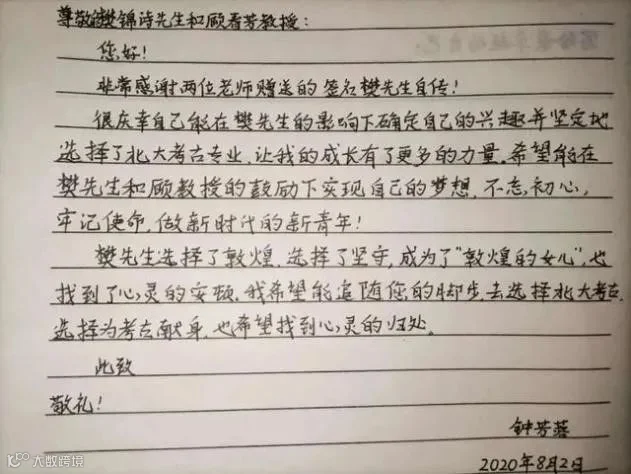 尊敬的樊锦诗先生和顾春芳教授:
您好!
非常感谢两位老师赠送的签名樊先生自传!
很庆幸自己能在樊先生的影响下确定自己的兴趣并坚定地
选择了北大考古专业,让我的成长有了更多的力量。希望能在
樊先生和顾教授的鼓励下实现自己的梦想,不忘初心,
牢记使命,做新时代的新青年!
樊先生选择了敦煌,选择了坚守,成为了"敦煌的女儿",也
找到了心灵的安顿。我希望能追随您的脚步,去选择北大考古,
选择为考古献身,也希望找到心灵的归处。
此致
敬礼!
钟芳蓉
2020年8月2日
大数跨境